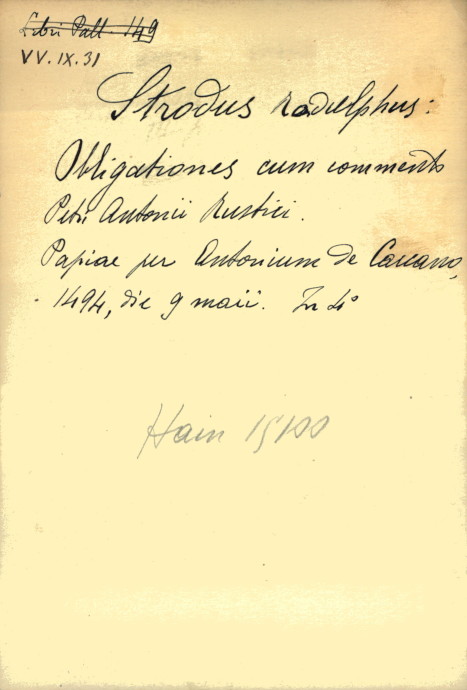 Libri Pall. 149
VV.IX.31
Strodus Radulphus:
Obligationes cum commento
Petri Antonii Rustici.
Papiae per Antonium de Carcano,
1494, die 9 maii. In 4°
Hain 15100